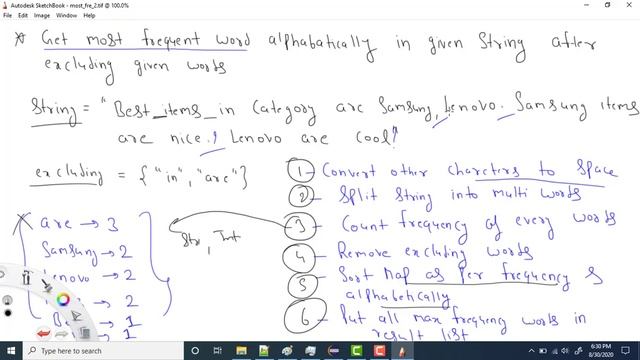 Autodesk SketchBook - most_fre_2.tif @ 100.0%
File Edit Image Window Help
* Get most frequent word alphabatically in given String after
excluding given words
String = "Best items in Category are Samsung, Lenovo. Samsung items
are nice! Lenovo are cool!
excluding = {"in", "are"}
are → 3
Samsung → 2
Lenovo → 2
→ 2
Be → 1
→ 1
Str, Int
1 Convert other charcters to Space
2 Split String into multi words
3 Count frequency of every words
4 Remove excluding words
5 Sort Map as per frequency &
alphabetically
6 Put all max frequency words in
result list
Type here to search
6:30 PM
8/30/2020